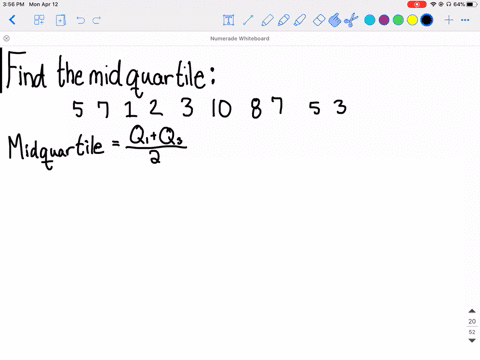 3:56 PM Mon Apr 12
64%
Numerade Whiteboard
Find the midquartile:
5 7 1 2 3 10 8 7 5 3
Midquartile = Q₁+Q₃
2
20
52